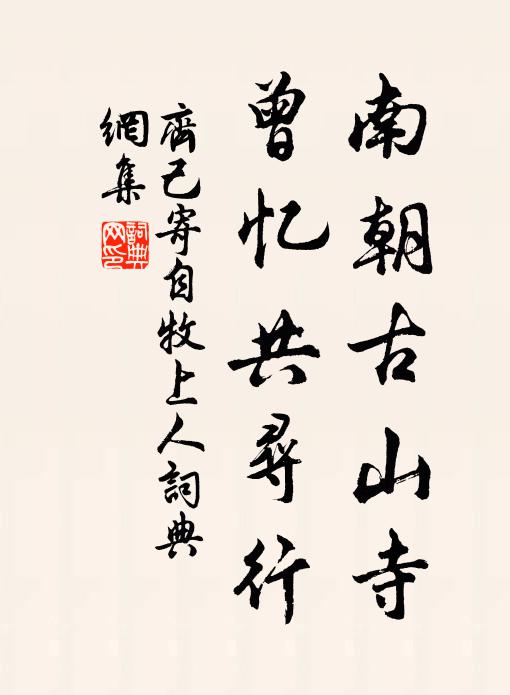 南朝古山寺
曾忆共尋行
齊己寄自牧上人詞典
網集
詞典网印